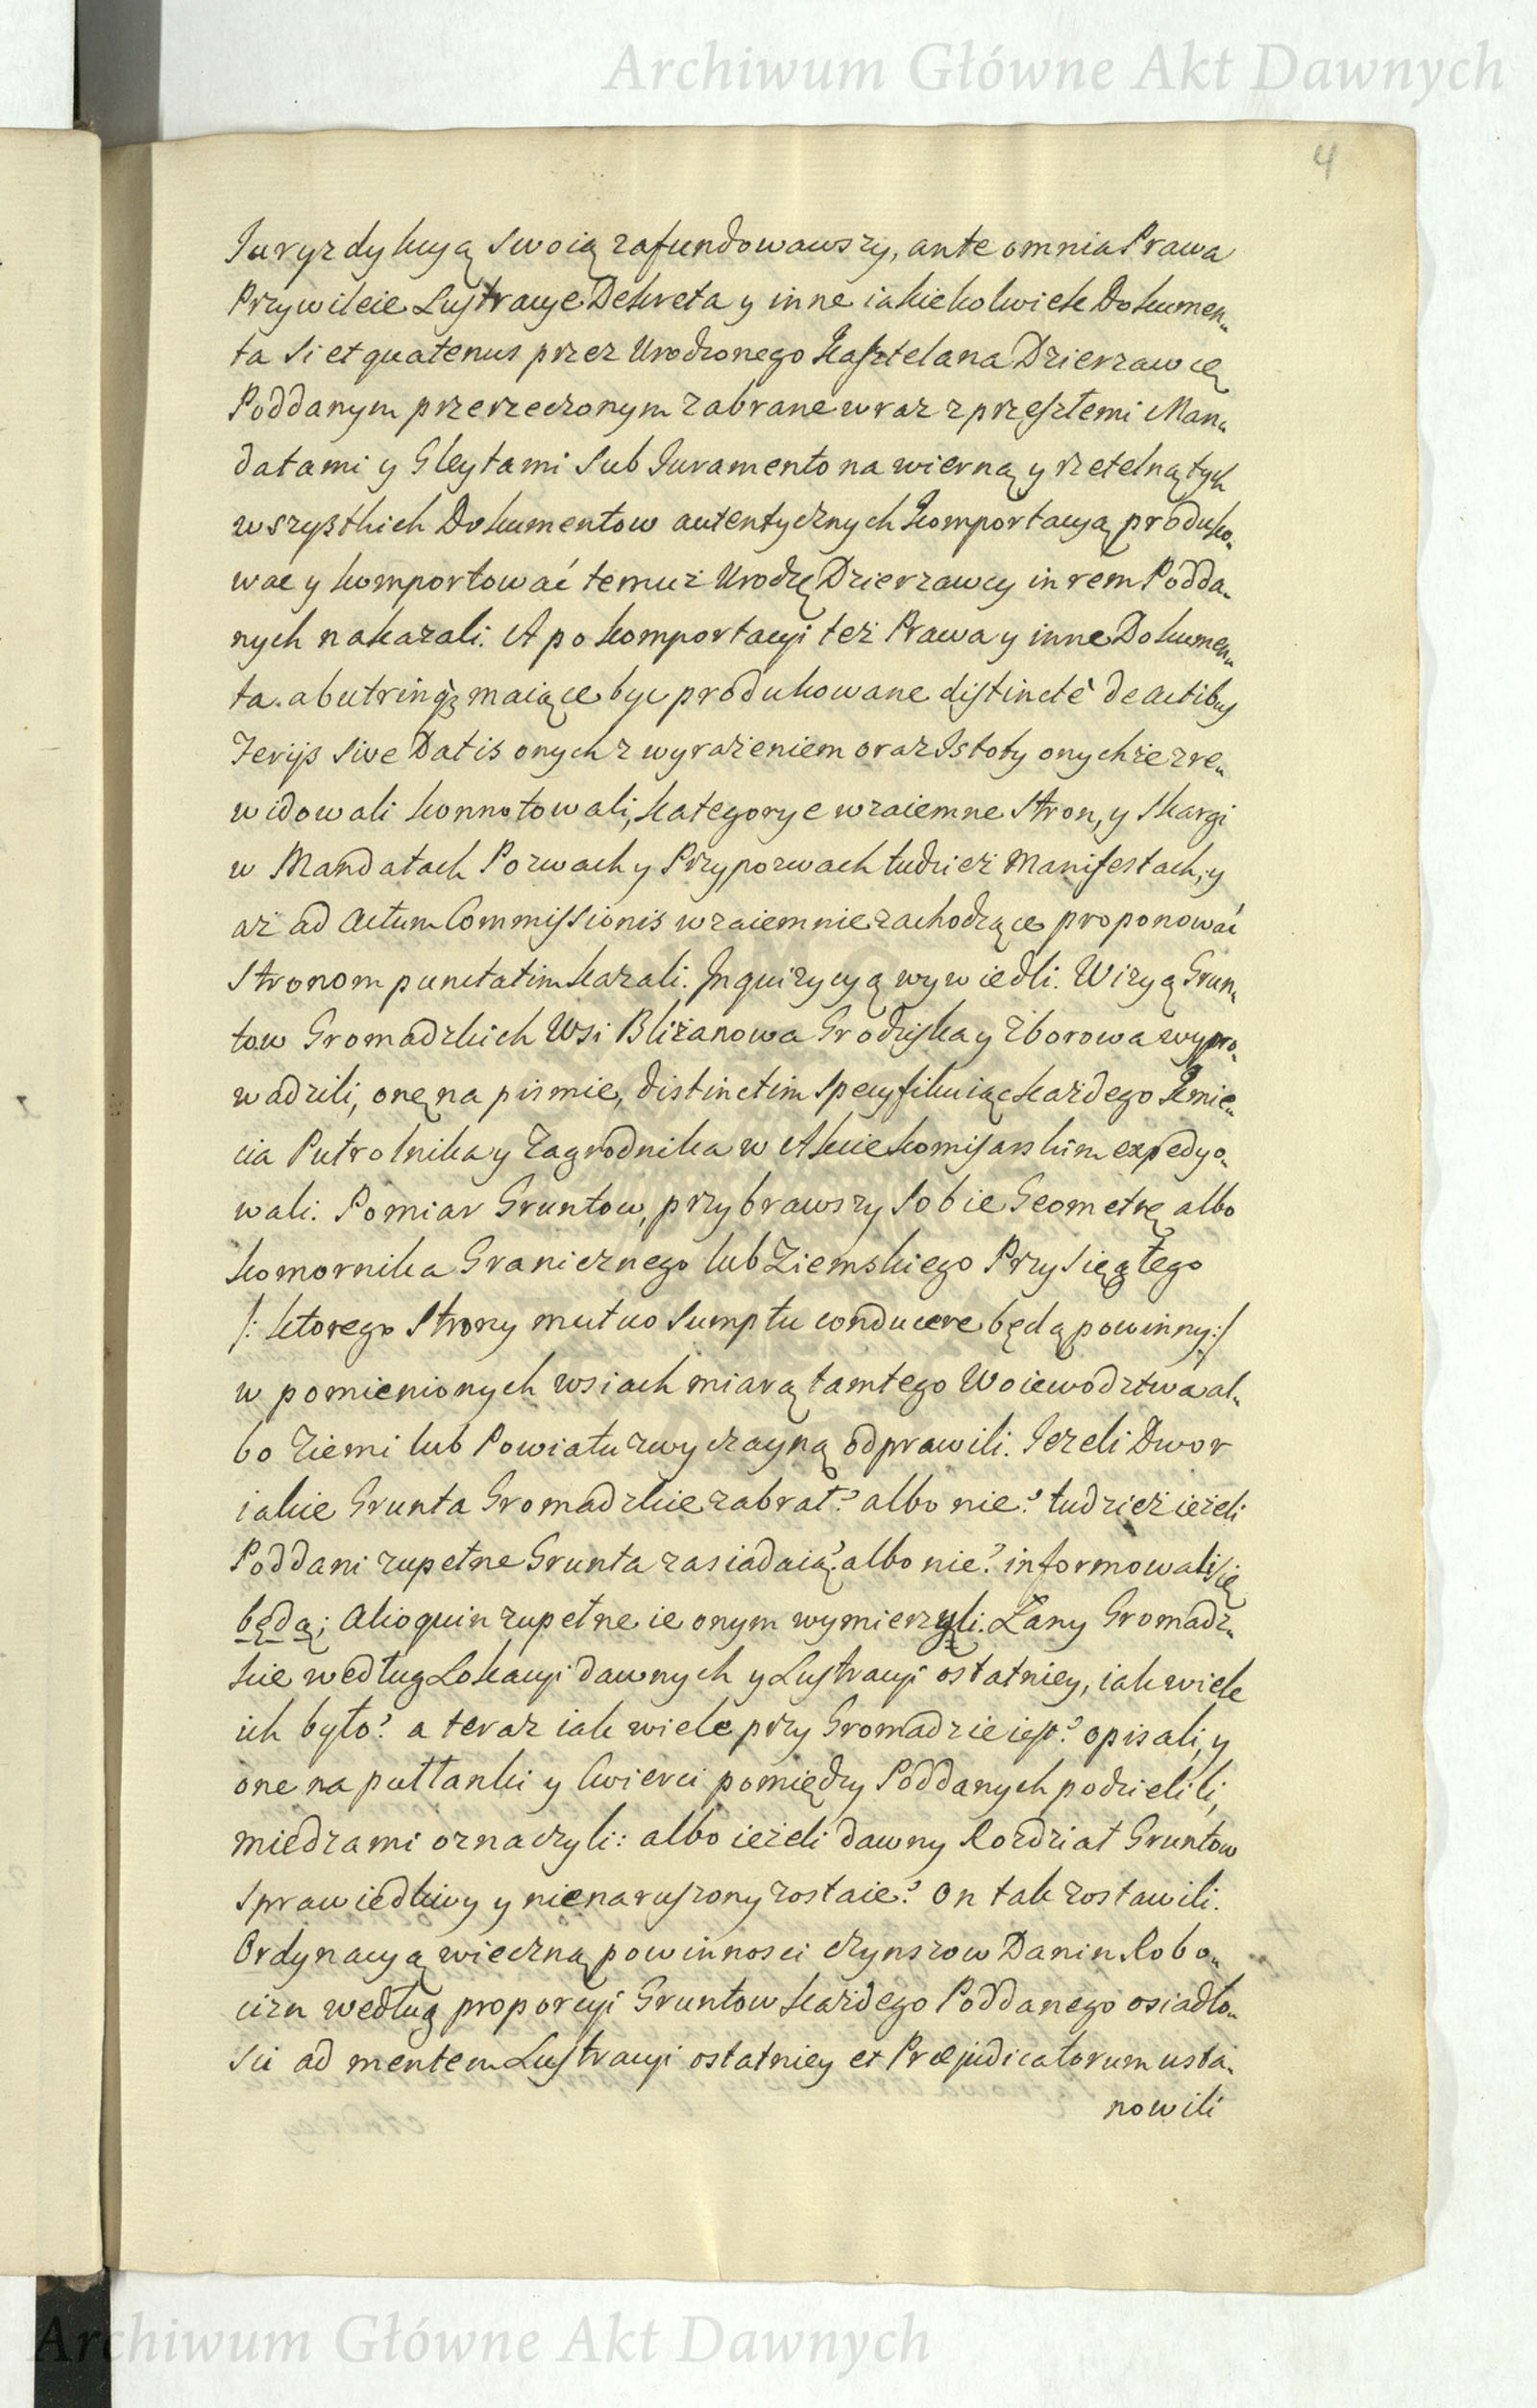 Archiwum Główne Akt Dawnych
4
Juryzdykcyą Swoią zafundowawszy, ante omnia Prawa
Przywileie Lustracye Dekreta y inne iakiekolwiek Dokumen„
ta Si et quatenus przez Urodzonego Kasztelana Dzierzawcę
Poddanym przerzeczonym zabrane wraz z przeszłemi Man„
datami y Gleytami Sub Juramento na wierną y rzetelną tych
wszystkich Dokumentow autentycznych komportacyą produko„
wac y komportować temuż Urodzę Dzierzawcy in rem Podda„
nych nakazali. A po komportacyi też Prawa y inne Dokumen„
ta ab utrinq3 maiące byc produkowane distinctè de actibus
Feriis Sive Datis onych z wyrażeniem oraz Istoty onychże zre„
widowali konnotowali, kategorye wzaiemne Stron, y Skargi
w Mandatach Pozwach y Przypozwach tudzież Manifestach, y
aż ad Actum Commissionis wzaiemnie zachodzące proponować
Stronom punctatim kazali. Inquizycyą wywiedli. Wizyą Grun„
tow Gromadzkich Wsi Bliżanowa Grodziska y Zborowa wypro„
wadzili, onę na pismie, distinctim Specyfikuiąc każdego Kmie„
cia Pułrolnika y Zagrodnika w Akcie komisarskim expedyo„
wali. Pomiar Gruntow, przybrawszy Sobie Geometrę albo
komornika Granicznego lub Ziemskiego Przysięgłego
/: ktorego Strony mutuo Sumptu conducere będą powinny :/
w pomienionych wsiach miarą tamtego Woiewodztwa al„
bo Ziemi lub Powiatu zwyczayną odprawili. Jeżeli Dwor
iakie Grunta Gromadzkie zabrał? albo nie? tudzież ieżeli
Poddani zupełne Grunta zasiadaią? albo nie? informowali się
będą; Alioquin zupełne ie onym wymierzyli. Łany Gromadz„
kie według Lokacyi dawnych y Lustracyi ostatniey, iak wiele
ich było? a teraz iak wiele przy Gromadzie iest? opisali, y
one na pułłanki y kwierci pomiędzy Poddanych podzielili,
miedzami oznaczyli: albo ieżeli dawny Rozdział Gruntow
Sprawiedliwy y nienaruszony zostaie? On tak zostawili.
Ordynacyą wieczną powinnosci czynszow Danin Robo„
cizn według proporcyi Gruntow każdego Poddanego osiadło„
sci ad mentem Lustracyi ostatniey et Præjudicatorum usta„
nowili
Archiwum Główne Akt Dawnych